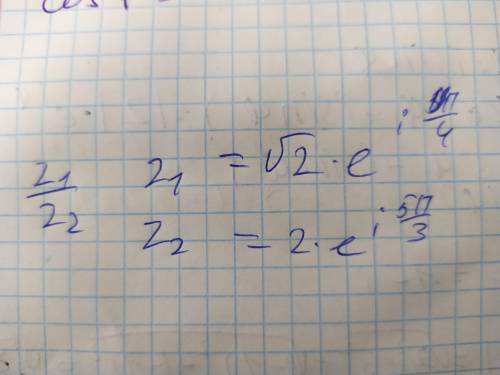 z₁/z₂ z₁ = √2 · e^(i π/4)
z₂ = 2 · e^(i 5π/3)